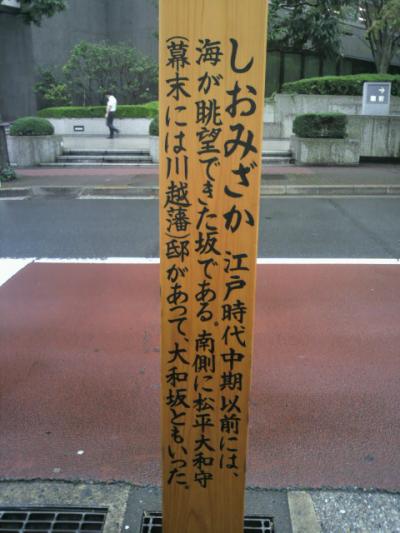 しおみざか 江戸時代中期以前には、
海が眺望できた坂である。南側に松平大和守
(幕末には川越藩)邸があって、大和坂ともいった。